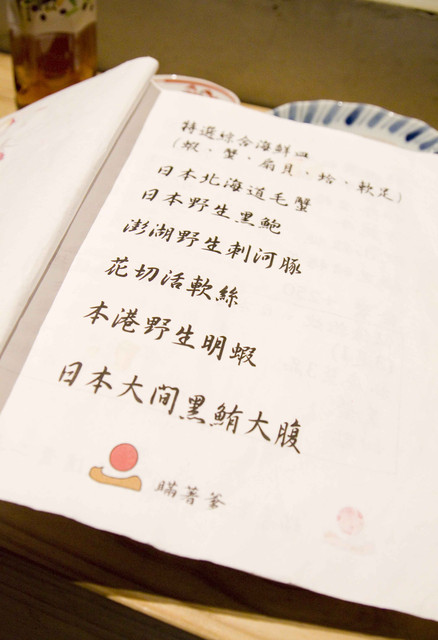 特選綜合海鮮皿
(蝦、蟹、扇貝、蛤、軟足)
日本北海道毛蟹
日本野生黑鮑
澎湖野生刺河豚
花切活軟絲
本港野生明蝦
日本大間黑鮪大腹
瞞著爹